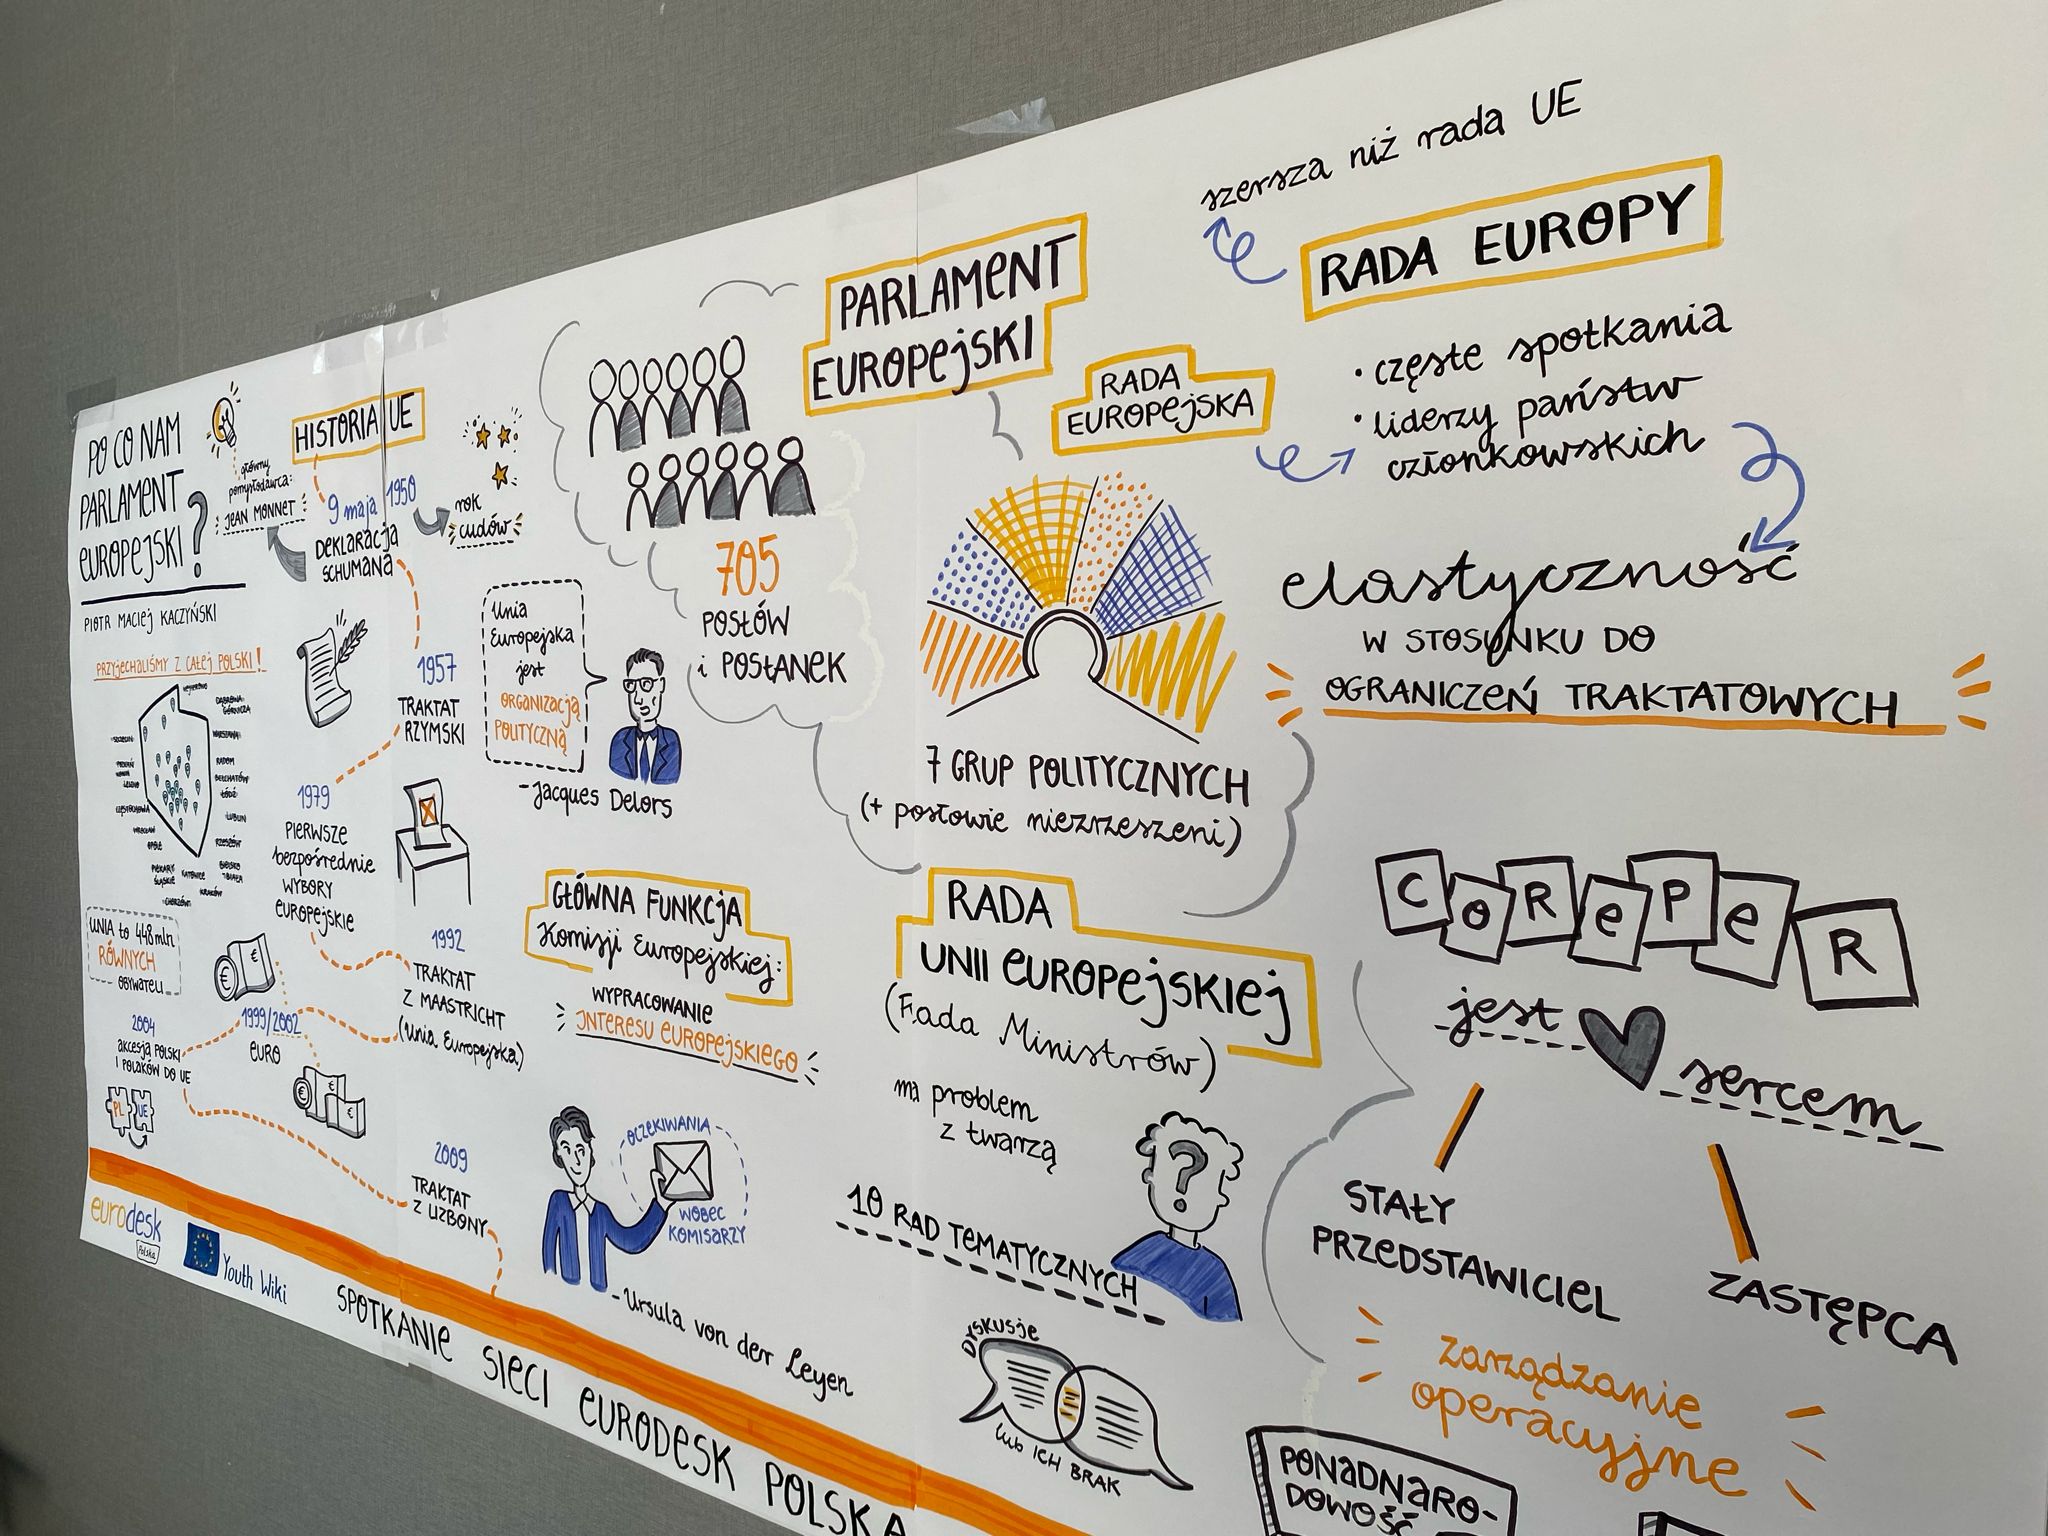 PO CO NAM
PARLAMENT
EUROPEJSKI?
PIOTR MACIEJ KACZYŃSKI
PRZYJECHALIŚMY Z CAŁEJ POLSKI!
WEJHEROWO
DĄBROWA
GÓRNICZA
SZCZECIN
WARSZAWA
POZNAŃ
RADOM
BEŁCHATÓW
ŁÓDŹ
CZĘSTOCHOWA
LUBLIN
WROCŁAW
RZESZÓW
OPOLE
PIEKARY
ŚLĄSKIE
KATOWICE
BIELSKO
BIAŁA
KRAKÓW
CHORZÓW
UNIA to 448 mln
RÓWNYCH
OBYWATELI
główny
pomysłodawca:
JEAN MONNET
HISTORIA UE
9 maja 1950
DEKLARACJA
SCHUMANA
rok
cudów
1957
TRAKTAT
RZYMSKI
1979
PIERWSZE
bezpośrednie
WYBORY
EUROPEJSKIE
1992
TRAKTAT
Z MAASTRICHT
(Unia Europejska)
1999/2002
EURO
2004
akcesja POLSKI
I POLAKÓW DO UE
PL UE
2009
TRAKTAT
Z LIZBONY
Unia
Europejska
jest
ORGANIZACJĄ
POLITYCZNĄ
- Jacques Delors
GŁÓWNA FUNKCJA
Komisji Europejskiej:
WYPRACOWANIE
INTERESU EUROPEJSKIEGO
OCZEKIWANIA
WOBEC
KOMISARZY
- Ursula von der Leyen
PARLAMENT
EUROPEJSKI
705
POSŁÓW
i POSŁANEK
7 GRUP POLITYCZNYCH
(+ posłowie niezrzeszeni)
RADA
EUROPEJSKA
szersza niż rada UE
RADA EUROPY
• częste spotkania
• liderzy państw
członkowskich
elastyczność
W STOSUNKU DO
OGRANICZEŃ TRAKTATOWYCH
RADA
UNII EUROPEJSKIEJ
(Rada Ministrów)
ma problem
z twarzą
?
10 RAD TEMATYCZNYCH
DYSKUSJE
lub ICH BRAK
COREPER
jest sercem
STAŁY
PRZEDSTAWICIEL
ZASTĘPCA
zarządzanie
operacyjne
PONADNARO-
DOWOŚĆ
eurodesk
Polska
Youth Wiki
SPOTKANIE SIECI EURODESK POLSKA